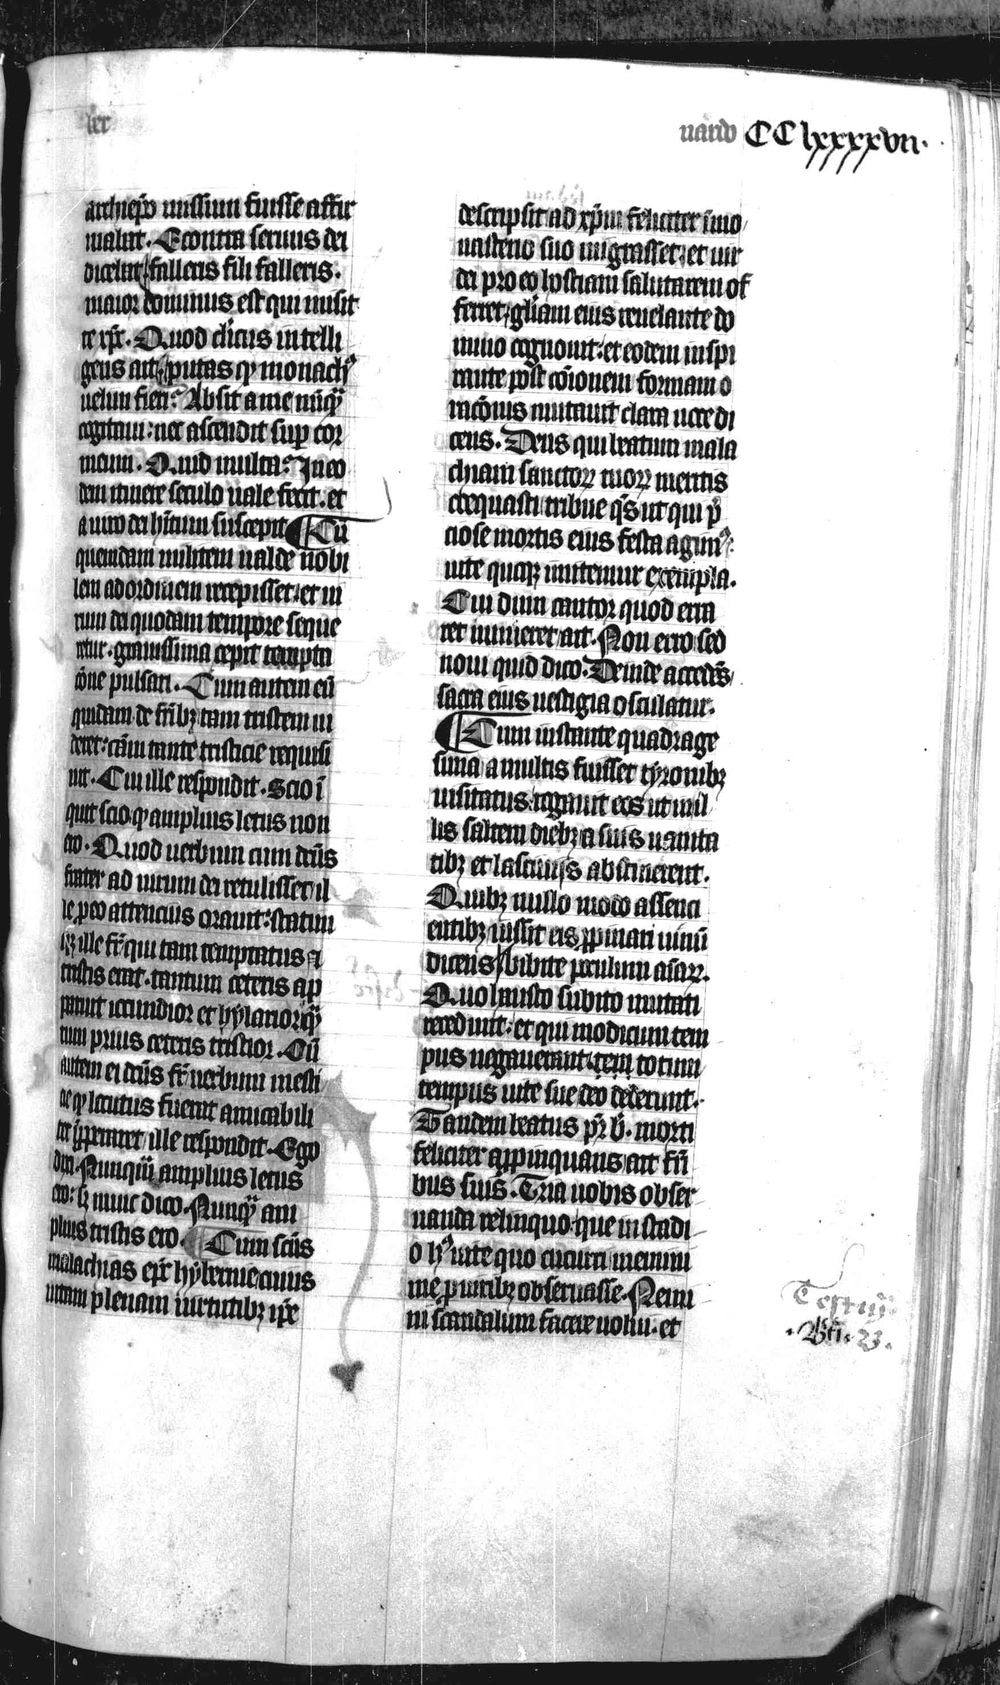 ler
uardo CClxxxxvii.
archiepo missum fuisse affir
mabat. Econtra seruus dei
dicebat falleris fili falleris.
maior dominus est qui misit
te xpc. Quod clicus intelli
gens ait putas qp monachꝰ
uelim fieri? Absit a me nūqꝫ
cogitaui: nec ascendit sup cor
meum. Quid multa? In eo
dem itinere seculo uale fecit. et
a uiro dei hitum suscepit Cū
quemdam militem ualde nobi
lem ad ordinem recepisset: et ui
rum dei quodam tempore seque
retur. grauissima cepit tempta
cōne pulsari. Cum autem eū
quidam de frībꝫ tam tristem ui
deret: cām tante tristicie requisi
uit. Cui ille respondit. Scio i
quit scio qp amplius letus non
ero. Quod uerbum cum dcūs
frater ad uirum dei retulisset il
le p eo attencius orauit: statim
qꝫ ille fr qui tam temptatus ⁊
tristis erat. tantum ceteris ap
paruit iocundior et hylarior qꝫ
tum prius ceteris tristior. Cū
autem ei dcūs fr uerbum mesti
cie qp locutus fuerat amicabili
ter ipperaret ille respondit. Ego
dixi. Nunqꝫ amplius letus
ero: sꝫ nunc dico. Nunqꝫ am
plius tristis ero. Cum scūs
malachias epc hybernie cuius
uitam plenam uirtutibꝫ ipe
descripsit ad xpm feliciter i mo
nasterio suo migrasset. et uir
dei pro eo hostiam salutarem of
ferret. gliam eius reuelante do
mino cognouit: et eodem inspi
rante post cōionem formam o
racōnis mutauit clara uoce di
cens. Deus qui beatum mala
chiam sanctorꝝ tuorꝝ meritis
coequasti tribue qs ut qui p
ciose mortis eius festa agimꝰ.
uite quoqꝫ imitemur exempla.
Cui dum cantor quod erra
ret innueret ait. Non erro sed
noui quid dico. Deinde accedēs
sacra eius uestigia osculatur.
Cum instante quadrage
sima a multis fuisset tyronibꝫ
uisitatus. rogauit eos ut uil
lis saltem diebꝫ a suis uanita
tibꝫ et lasciuijs abstinerent.
Quibꝫ nullo modo assenci
entibꝫ iussit eis ppinari uinū
dicens bibite poculum aīarꝝ.
Quo hausto subito mutati
recedunt: et qui modicum tem
pus negauerant rem totum
tempus uite sue deo dederunt.
Tandem beatus pr b. morti
feliciter appinquans ait fri
bus suis. Tria uobis obser
uanda relinquo. que in stadi
o hꝰ uite quo cucurri memini
me p uiribꝫ obseruasse. Nemi
ni scandalum facere uolui. et